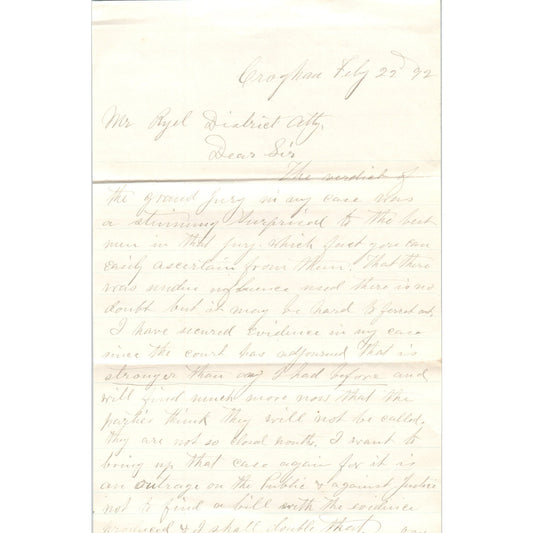 Croghan Feby 22d 92
Mr Ryel District Atty,
Dear Sir
The verdict of
the grand Jury in my case was
a stunning Surprisd to the best
men in that jury. which fact you can
easily ascertain from them. That there
was undue influence used there is no
doubt but it may be hard to ferret out.
I have secured Evidence in my case
since the court has adjourned that is
stronger than any I had before and
will find much more now that the
parties think they will not be called.
they are not so closd mouth. I want to
bring up that case again for it is
an outrage on the Public & against Justice
not to find a bill with the evidence
produced & I shall double that